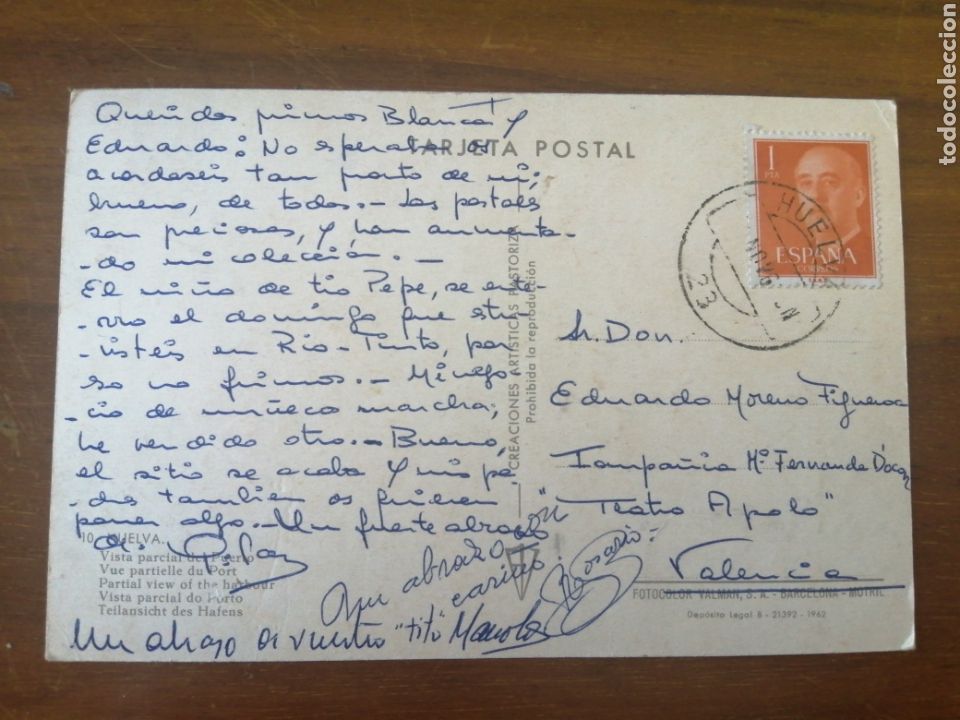 Queridos primos Blanca y
Eduardo: No esperaba os
acordaseis tan pronto de mi;
bueno, de todos.- Las postales
son preciosas, y han aumenta-
-do mi colección.-
El niño de tio Pepe, se
el domingo que estu-
-visteis en Rio-Tinto, por
so no fuimos.- Mi nego-
-cio de muñeco marcha;
he vendido otro.- Bueno,
el sitio se acaba y mis pa-
-dres tambien os quieren
poner algo.- Un fuerte abrazo
TARJETA POSTAL
10. HUELVA.
Vista parcial del Puerto
Vue partielle du Port
Partial view of the harbour
Vista parcial do Porto
Teilansicht des Hafens
Un abrazo con
cariño
Rosario
Un abrazo de vuestro "tito" Manolo
CREACIONES ARTISTICAS PASTORIZA
Prohibida la reproducción
1
PTA
ESPAÑA
CORREOS
HUELVA
23
Sr. Don.
Eduardo Moreno Figueroa
Compañia Mª Fernanda D'Ocon
"Teatro Apolo"
Valencia
FOTOCOLOR VALMAN, S. A. - BARCELONA - MOTRIL
Depósito Legal B - 21392 - 1962
todocoleccion